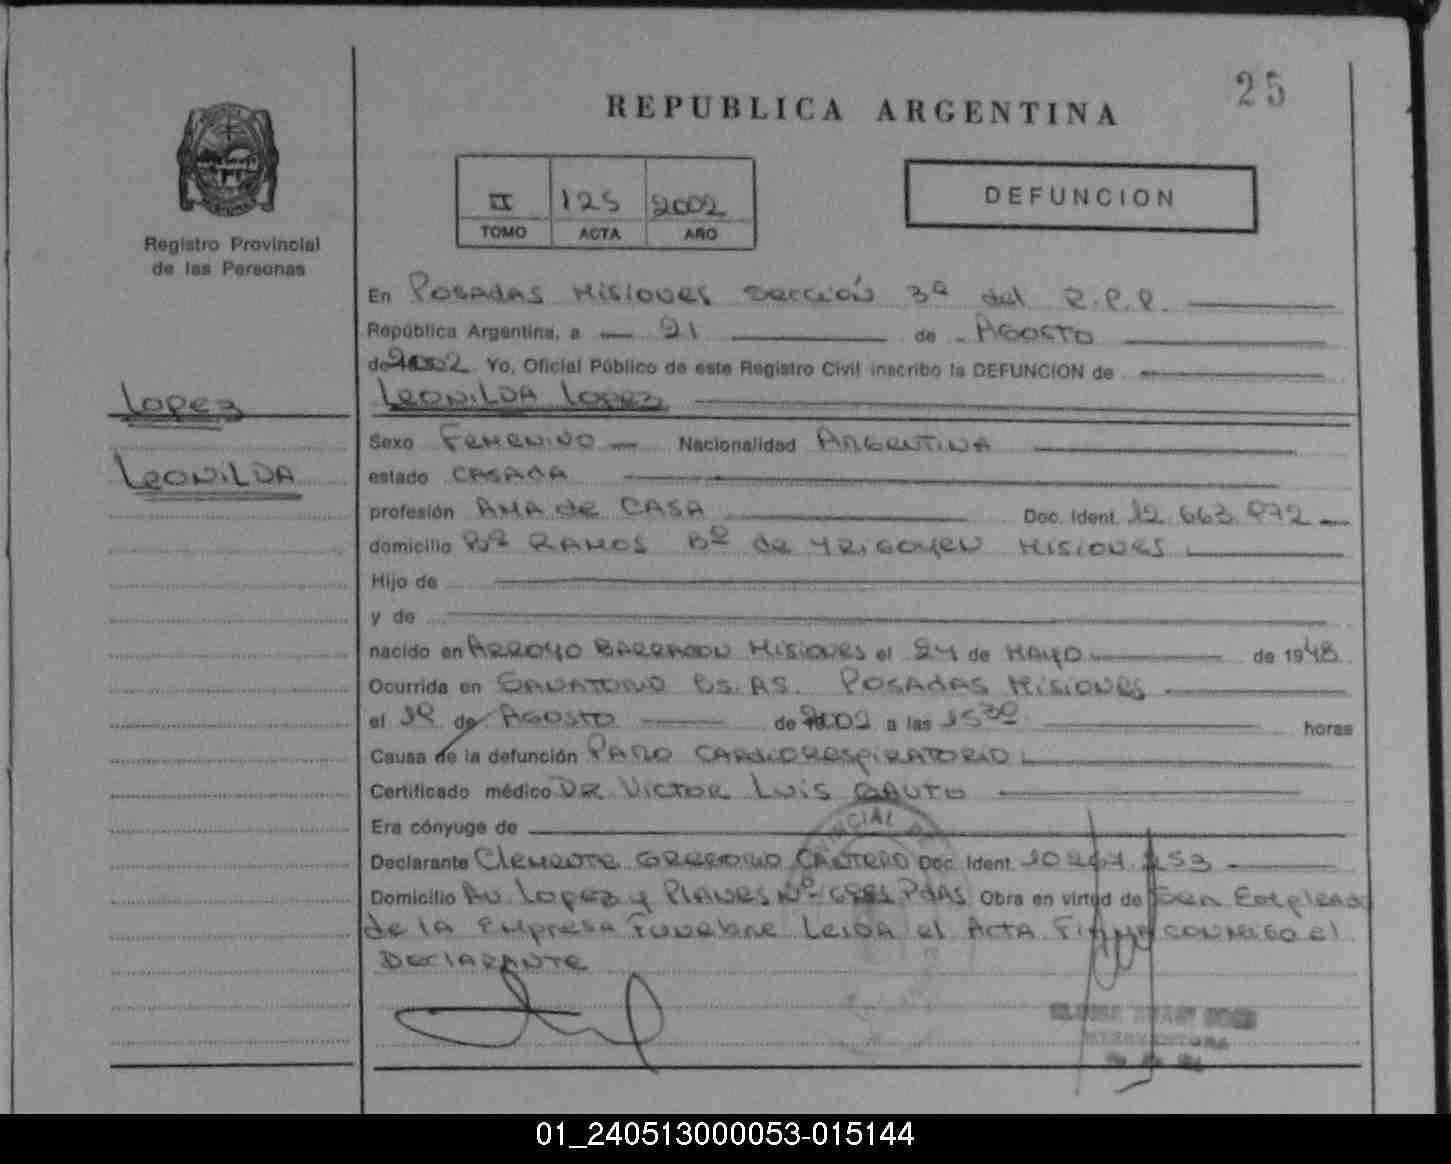 25
REPUBLICA ARGENTINA
DEFUNCION
II 125 2002
TOMO ACTA AÑO
Registro Provincial
de las Personas
En Posadas Misiones Sección 3ª del R.P.P.
República Argentina, a 21 de Agosto
de 2002 Yo, Oficial Público de este Registro Civil inscribo la DEFUNCION de
Lopez
Leonilda Lopez
Sexo Femenino Nacionalidad Argentina
Leonilda
estado Casada
profesión Ama de Casa Doc. Ident. 12.663.972
domicilio Bº Ramos Bº de Yrigoyen Misiones
Hijo de
y de
nacido en Arroyo Barracon Misiones el 24 de Mayo de 1948
Ocurrida en Sanatorio Bs. As. Posadas Misiones
el de Agosto de 2002 a las 15 30 horas
Causa de la defunción Paro Cardiorespiratorio
Certificado médico Dr Victor Luis Gauto
Era cónyuge de
Declarante Clemente Gregorio Cantero Doc. Ident.
Domicilio Av. Lopez y Planes Nº Pdas Obra en virtud de Ser Empleado
de la Empresa Funebre Leida el Acta Firma conmigo el
Declarante
01_240513000053-015144